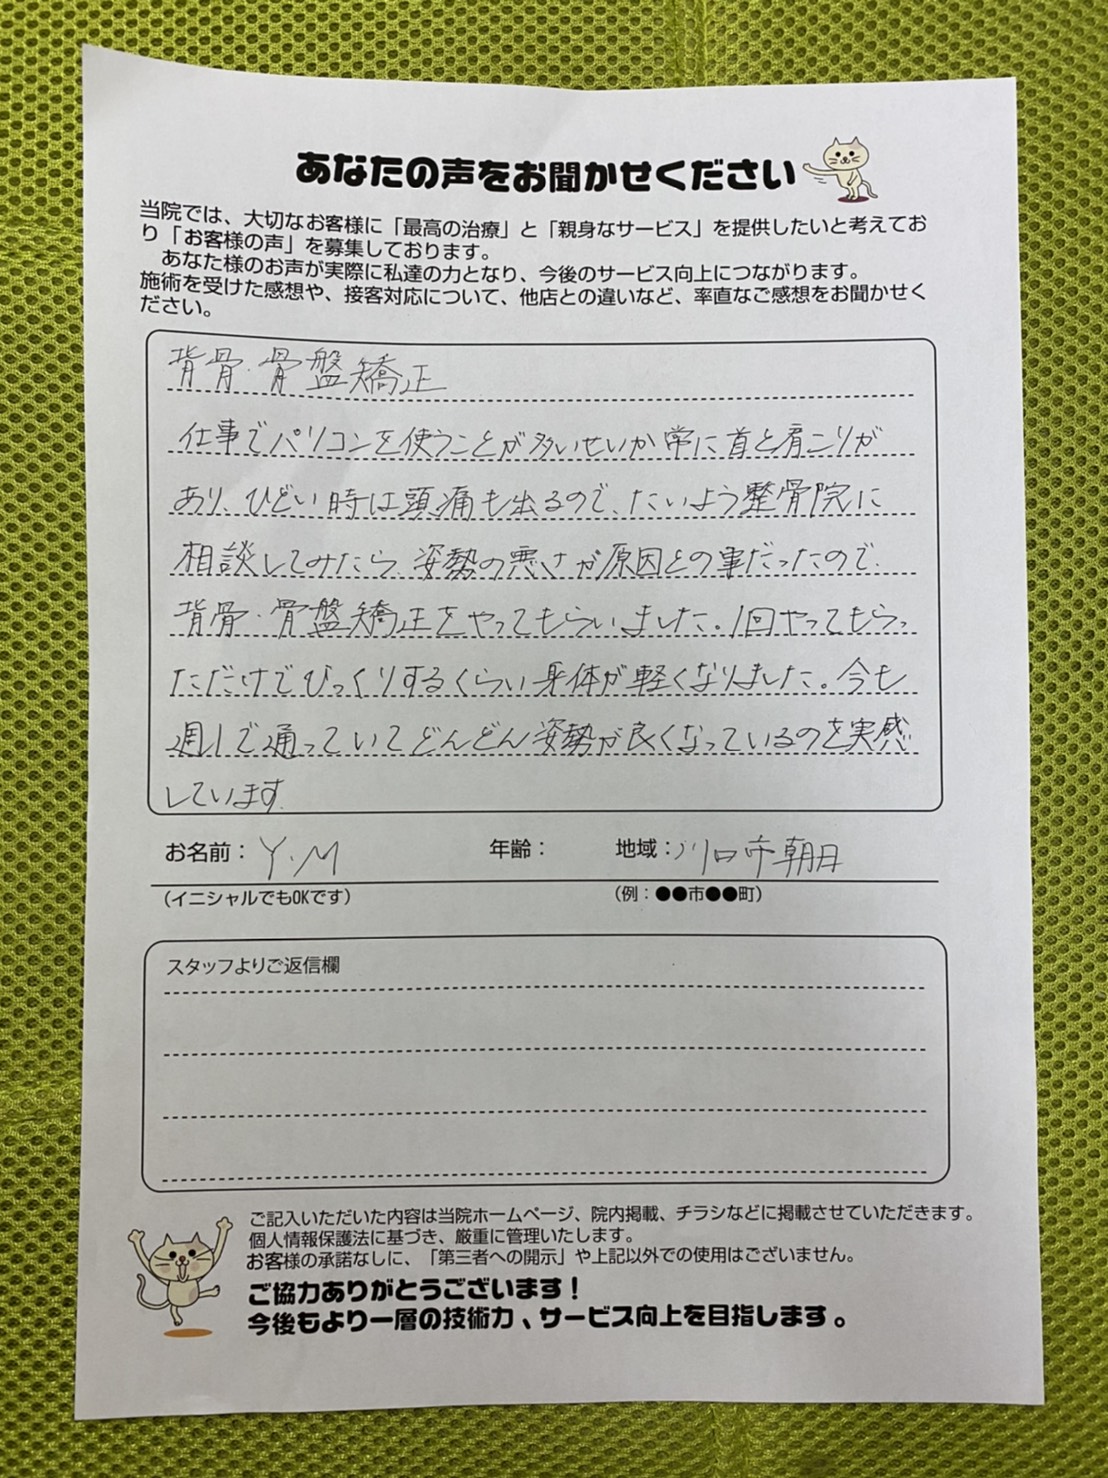 あなたの声をお聞かせください
当院では、大切なお客様に「最高の治療」と「親身なサービス」を提供したいと考えてお
り「お客様の声」を募集しております。
あなた様のお声が実際に私達の力となり、今後のサービス向上につながります。
施術を受けた感想や、接客対応について、他店との違いなど、率直なご感想をお聞かせく
ださい。
背骨・骨盤矯正
仕事でパソコンを使うことが多いせいか常に首と肩こりが
あり、ひどい時は頭痛も出るので、たいよう整骨院に
相談してみたら、姿勢の悪さが原因との事だったので、
背骨・骨盤矯正をやってもらいました。1回やってもらっ
ただけでびっくりするくらい身体が軽くなりました。今も
週1で通っていてどんどん姿勢が良くなっているのを実感
しています。
お名前：Y.M 年齢： 地域：川口市朝日
（イニシャルでもOKです） （例：●●市●●町）
スタッフよりご返信欄
ご記入いただいた内容は当院ホームページ、院内掲載、チラシなどに掲載させていただきます。
個人情報保護法に基づき、厳重に管理いたします。
お客様の承諾なしに、「第三者への開示」や上記以外での使用はございません。
ご協力ありがとうございます！
今後もより一層の技術力、サービス向上を目指します。